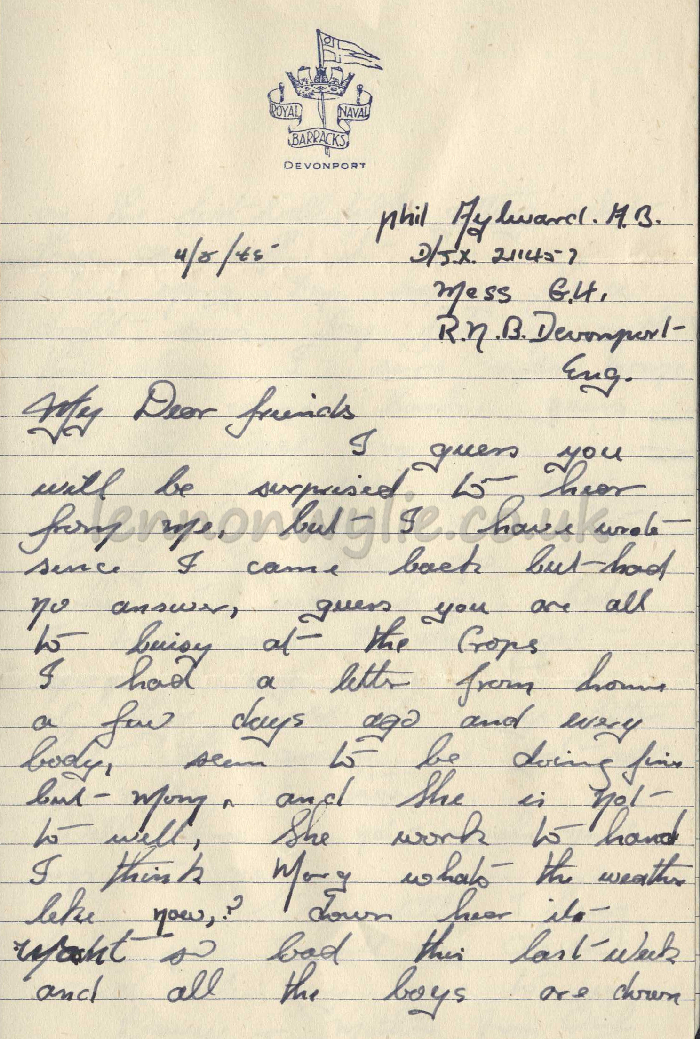 ROYAL NAVAL
BARRACKS
DEVONPORT
Phil Aylward. A.B.
4/8/45
D/J.X. 211457
Mess G.4.
R.N.B. Devonport
Eng.
My Dear friends
I guess you
will be surprised to hear
from me, but I have wrote
since I came back but had
no answer, guess you are all
to buisy at the Crops
I had a letter from home
a few days ago and every
body, seem to be doing fine
but Mary, and she is not
to well, She work to hard
I think Mary whats the weather
like now,? down hear its
not so bad this last week
and all the boys are down
lennonwylie.co.uk